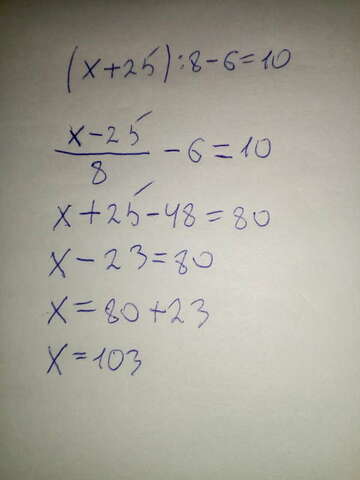 (x+25):8-6=10
x-25/8 -6=10
x+25-48=80
x-23=80
x=80+23
x=103